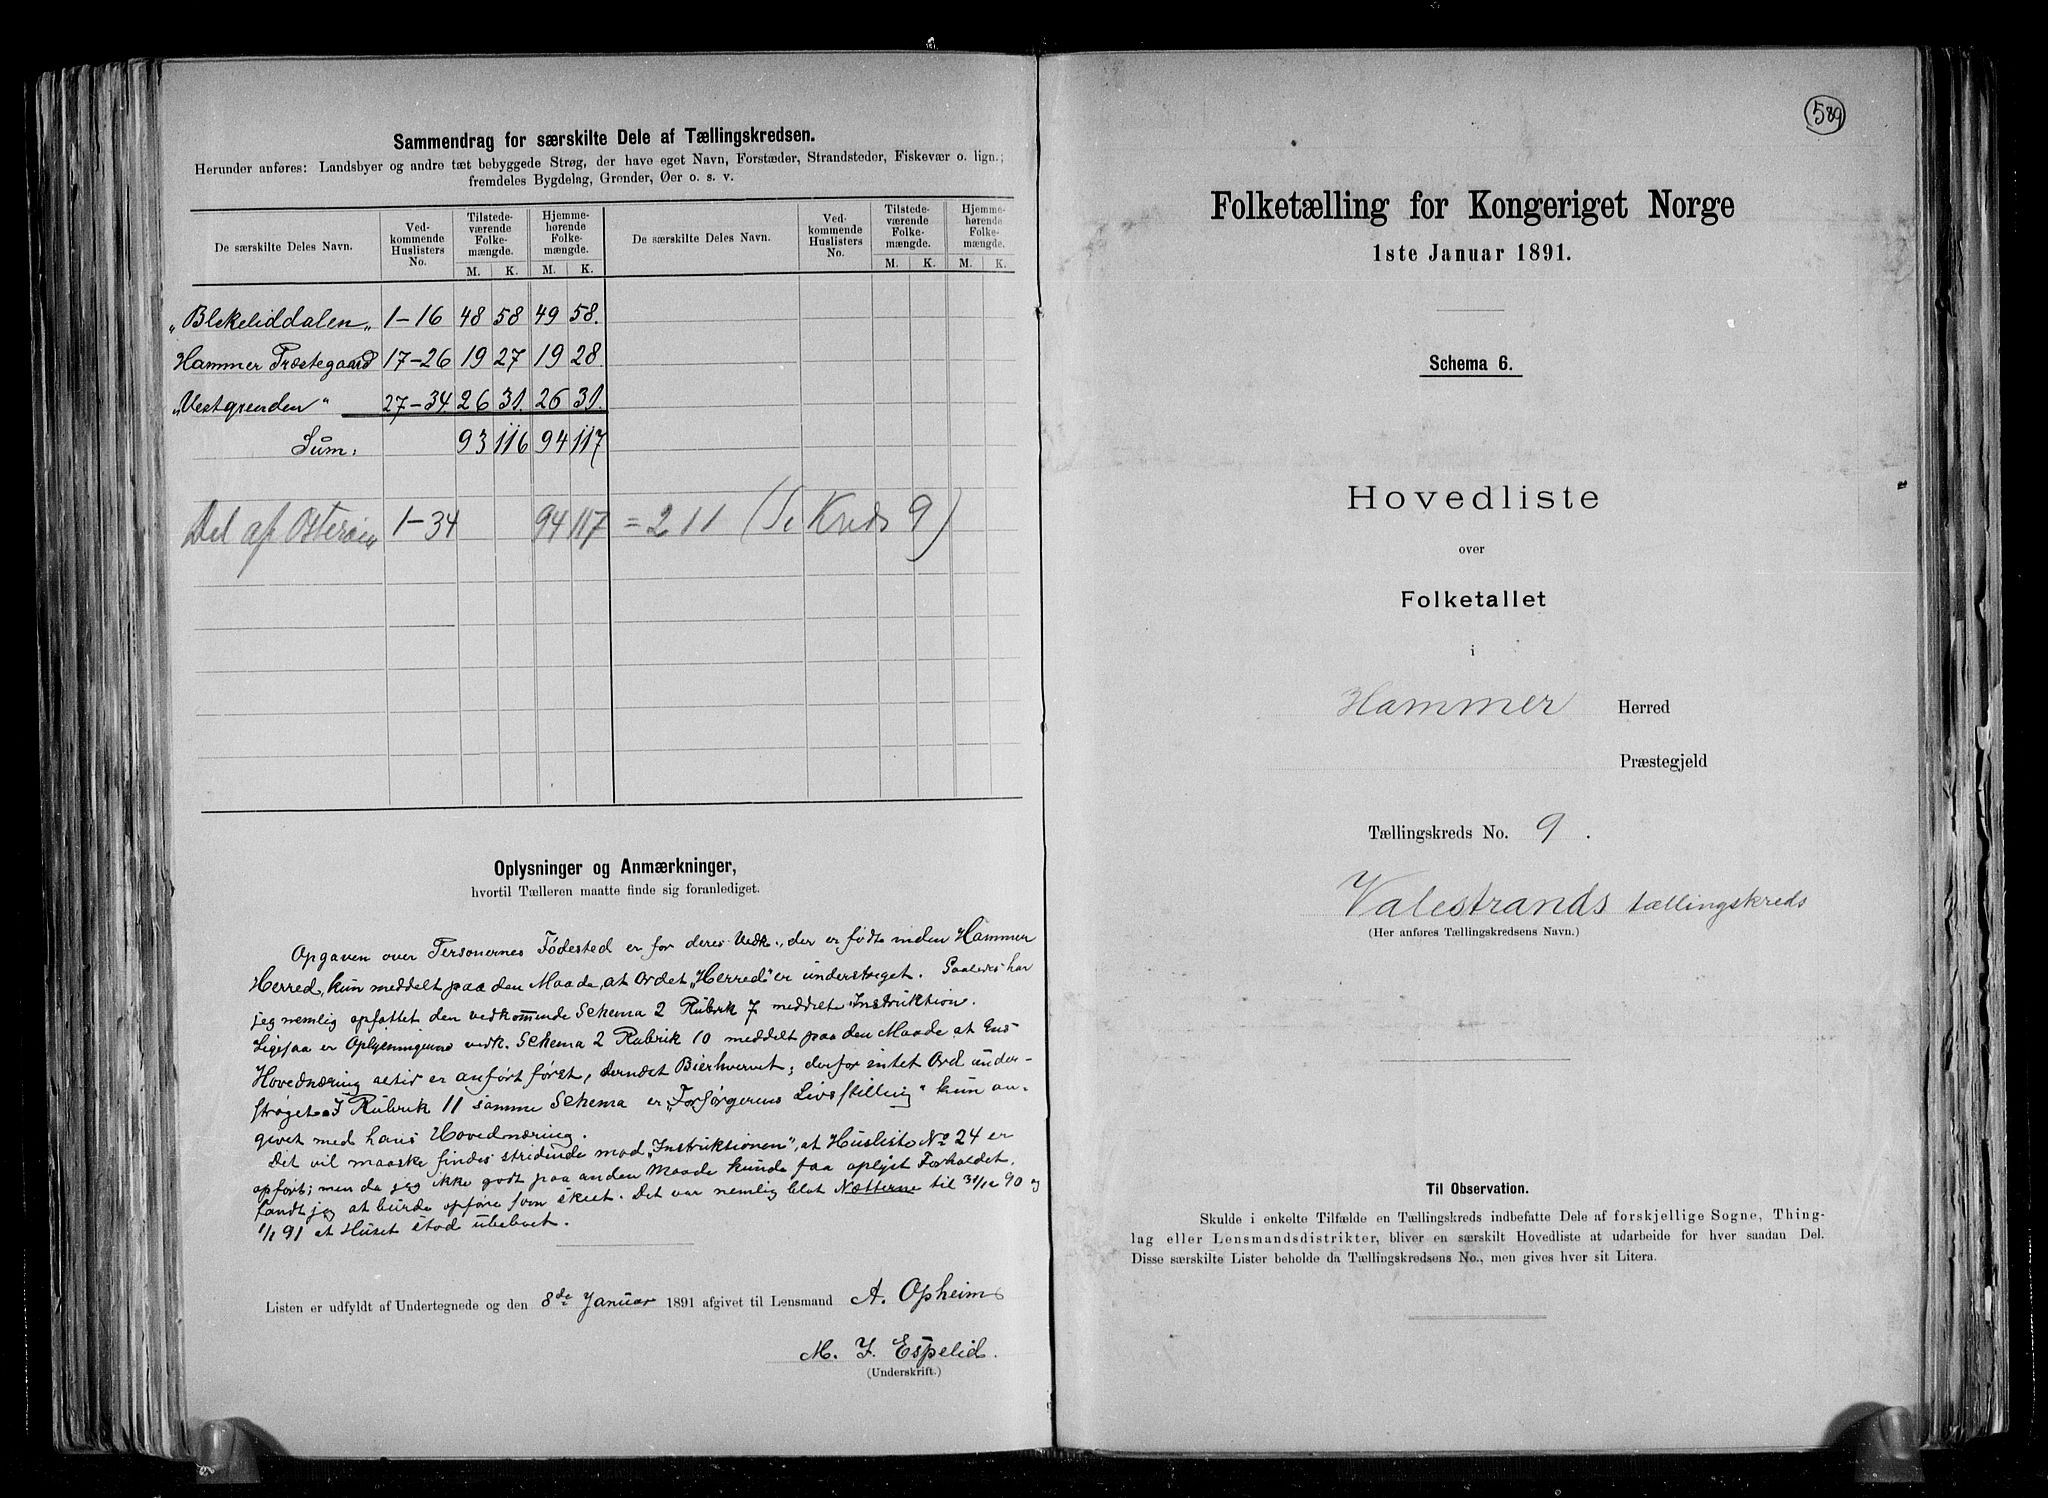 Sammendrag for særskilte Dele af Tællingskredsen.
Herunder anføres: Landsbyer og andre tæt bebyggede Strøg, der have eget Navn, Forstæder, Strandsteder, Fiskevær o. lign.;
fremdeles Bygdelag, Grender, Øer o. s. v.
De særskilte Deles Navn. Vedkommende Huslisters No. Tilstedeværende Folkemængde. M. K. Hjemmehørende Folkemængde. M. K. De særskilte Deles Navn. Vedkommende Huslisters No. Tilstedeværende Folkemængde. M. K. Hjemmehørende Folkemængde. M. K.
„Blekeliddalen„ 1-16 48 58 49 58.
Hammer Præstegaard 17-26 19 27 19 28
„Vestgrenden“ 27-34 26 31. 26 31.
Sum: 93 116 94 117
Del af Osterøen 1-34 94 117 = 211 (Se Kreds 9)
Oplysninger og Anmærkninger,
hvortil Tælleren maatte finde sig foranlediget.
Opgaven over Personernes Fødested er for deres Vedk., der er født inden Hammer
Herred, kun meddelt paa den Maade, at Ordet „Herred“ er understreget. Saaledes har
jeg nemlig opfattet den vedkommende Schema 2 Rubrik 7 meddelte Instruktion.
Ligesaa er Oplysningerne vedk. Schema 2 Rubrik 10 meddelt paa den Maade at Ens
Hovednæring altid er anført først, dernæst Bierhvervet; derfor intet Ord under-
strøget. I Rubrik 11 samme Schema er „Forsørgerens Livsstilling“ kun an-
givet med hans Hovednæring.
Det vil maaske findes stridende mod „Instruktionen“, at Husliste No 24 er
opført; men da jeg ikke godt paa anden Maade kunde faa oplyst Forholdet,
fandt jeg at burde opføre som skeet. Det var nemlig blot Nætterne til 31/12 90 og
1/1 91 at Huset stod ubeboet.
Listen er udfyldt af Undertegnede og den 8de Januar 1891 afgivet til Lensmand A. Opheim
M. J. Espelid.
(Underskrift.)
589
Folketælling for Kongeriget Norge
1ste Januar 1891.
Schema 6.
Hovedliste
over
Folketallet
i
Hammer Herred
Præstegjeld
Tællingskreds No. 9.
Valestrands tællingskreds
(Her anføres Tællingskredsens Navn.)
Til Observation.
Skulde i enkelte Tilfælde en Tællingskreds indbefatte Dele af forskjellige Sogne, Thing-
lag eller Lensmandsdistrikter, bliver en særskilt Hovedliste at udarbeide for hver saadan Del.
Disse særskilte Lister beholde da Tællingskredsens No., men gives hver sit Litera.